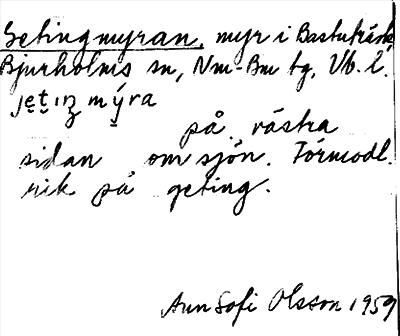 Getingmyran, myr i Bastuträsk
Bjurholms sn, Nm-Bm tg, Vb. l.
je̬t̬ɪŋ mýra
på västra
sidan om sjön. Förmodl.
rik på geting.
Ann Sofi Olsson 1959